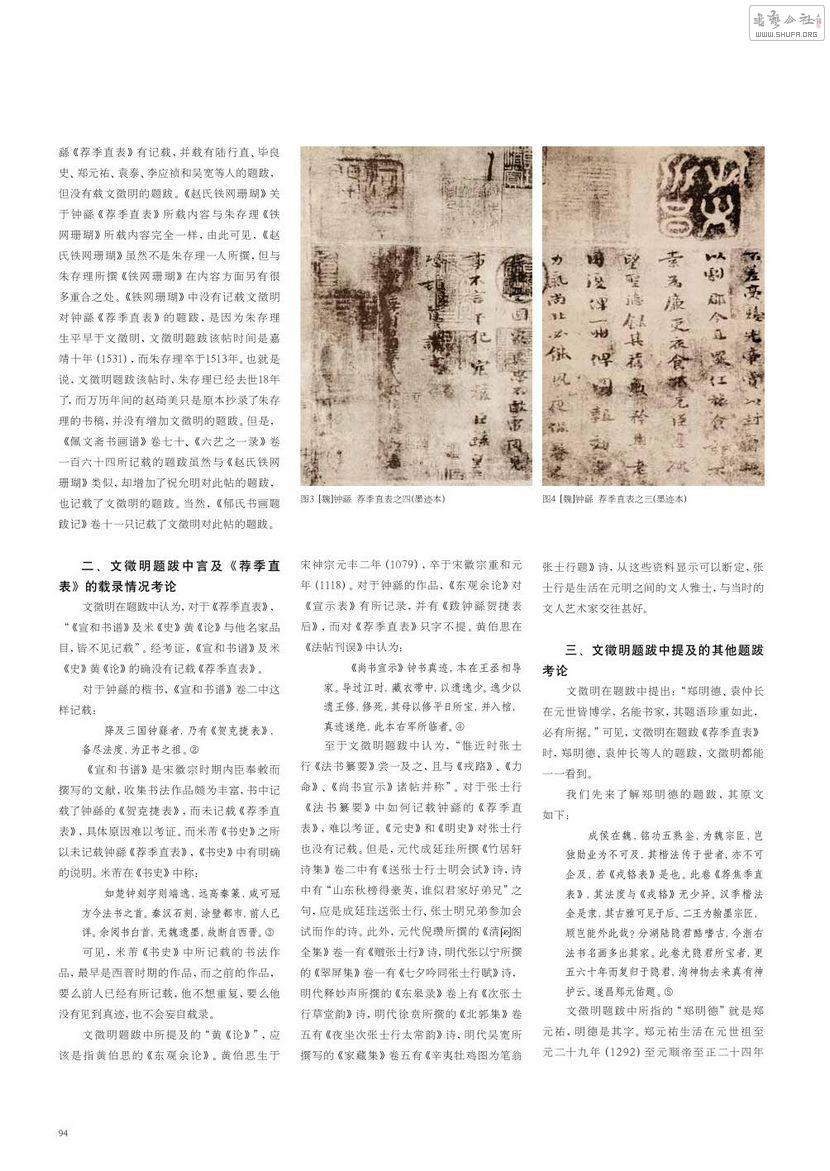 書藝公社
WWW.SHUFA.ORG
繇《荐季直表》有记载，并载有陆行直、毕良
史、郑元祐、袁泰、李应祯和吴宽等人的题跋，
但没有载文徵明的题跋。《赵氏铁网珊瑚》关
于钟繇《荐季直表》所载内容与朱存理《铁
网珊瑚》所载内容完全一样，由此可见，《赵
氏铁网珊瑚》虽然不是朱存理一人所撰，但与
朱存理所撰《铁网珊瑚》在内容方面另有很
多重合之处。《铁网珊瑚》中没有记载文徵明
对钟繇《荐季直表》的题跋，是因为朱存理
生平早于文徵明，文徵明题跋该帖时间是嘉
靖十年（1531），而朱存理卒于1513年。也就是
说，文徵明题跋该帖时，朱存理已经去世18年
了，而万历年间的赵琦美只是原本抄录了朱存
理的书稿，并没有增加文徵明的题跋。但是，
《佩文斋书画谱》卷七十、《六艺之一录》卷
一百六十四所记载的题跋虽然与《赵氏铁网
珊瑚》类似，却增加了祝允明对此帖的题跋，
也记载了文徵明的题跋。当然，《郁氏书画题
跋记》卷十一只记载了文徵明对此帖的题跋。
图3 [魏]钟繇 荐季直表之四(墨迹本)
图4 [魏]钟繇 荐季直表之三(墨迹本)
二、文徵明题跋中言及《荐季直
表》的载录情况考论
文徵明在题跋中认为，对于《荐季直表》，
“《宣和书谱》及米《史》黄《论》与他名家品
目，皆不见记载”。经考证，《宣和书谱》及米
《史》黄《论》的确没有记载《荐季直表》。
对于钟繇的楷书，《宣和书谱》卷二中这
样记载：
降及三国钟繇者，乃有《贺克捷表》，
备尽法度，为正书之祖。②
《宣和书谱》是宋徽宗时期内臣奉敕而
撰写的文献，收集书法作品颇为丰富，书中记
载了钟繇的《贺克捷表》，而未记载《荐季直
表》，具体原因难以考证。而米芾《书史》之所
以未记载钟繇《荐季直表》，《书史》中有明确
的说明。米芾在《书史》中称：
如楚钟刻字则端逸，远高秦篆，咸可冠
方今法书之首。秦汉石刻，涂壁都市，前人已
详。余阅书白首，无魏遗墨，故断自西晋。③
可见，米芾《书史》中所记载的书法作
品，最早是西晋时期的作品，而之前的作品，
要么前人已经有所记载，他不想重复，要么他
没有见到真迹，也不会妄自载录。
文徵明题跋中所提及的“黄《论》”，应
该是指黄伯思的《东观余论》。黄伯思生于
宋神宗元丰二年（1079），卒于宋徽宗重和元
年（1118）。对于钟繇的作品，《东观余论》对
《宣示表》有所记录，并有《跋钟繇贺捷表
后》，而对《荐季直表》只字不提。黄伯思在
《法帖刊误》中认为：
《尚书宣示》钟书真迹，本在王丞相导
家。导过江时，藏衣带中，以遗逸少。逸少以
遗王修，修死，其母以修平日所宝，并入棺，
真迹遂绝，此本右军所临者。④
至于文徵明题跋中认为，“惟近时张士
行《法书纂要》尝一及之，且与《戎路》、《力
命》、《尚书宣示》诸帖并称”。对于张士行
《法书纂要》中如何记载钟繇的《荐季直
表》，难以考证。《元史》和《明史》对张士行
也没有记载。但是，元代成廷珪所撰《竹居轩
诗集》卷二中有《送张士行士明会试》诗，诗
中有“山东秋榜得豪英，谁似君家好弟兄”之
句，应是成廷珪送张士行、张士明兄弟参加会
试而作的诗。此外，元代倪瓒所撰的《清閟阁
全集》卷一有《赠张士行》诗，明代张以宁所撰
的《翠屏集》卷一有《七夕吟同张士行赋》诗，
明代释妙声所撰的《东皋录》卷上有《次张士
行草堂韵》诗，明代徐贲所撰的《北郭集》卷
五有《夜坐次张士行太常韵》诗，明代吴宽所
撰写的《家藏集》卷五有《辛夷牡鸡图为笔翁
张士行题》诗，从这些资料显示可以断定，张
士行是生活在元明之间的文人雅士，与当时的
文人艺术家交往甚好。
三、文徵明题跋中提及的其他题跋
考论
文徵明在题跋中提出：“郑明德、袁仲长
在元世皆博学，名能书家，其题语珍重如此，
必有所据。”可见，文徵明在题跋《荐季直表》
时，郑明德、袁仲长等人的题跋，文徵明都能
一一看到。
我们先来了解郑明德的题跋，其原文
如下：
成侯在魏，铭功五熟釜，为魏宗臣，岂
独勋业为不可及，其楷法传于世者，亦不可
企及，若《戎辂表》是也。此卷《荐焦季直
表》，其法度与《戎辂》无少异。汉季楷法
全是隶，其古雅可见于后。二王为翰墨宗匠，
顾岂能外此哉？分湖陆隐君酷嗜古，今浙右
法书名画多出其家。此卷尤隐君所宝者，更
五六十年而复归于隐君，洵神物去来真有神
护云。遂昌郑元佑题。⑤
文徵明题跋中所指的“郑明德”就是郑
元祐，明德是其字。郑元祐生活在元世祖至
元二十九年（1292）至元顺帝至正二十四年
94